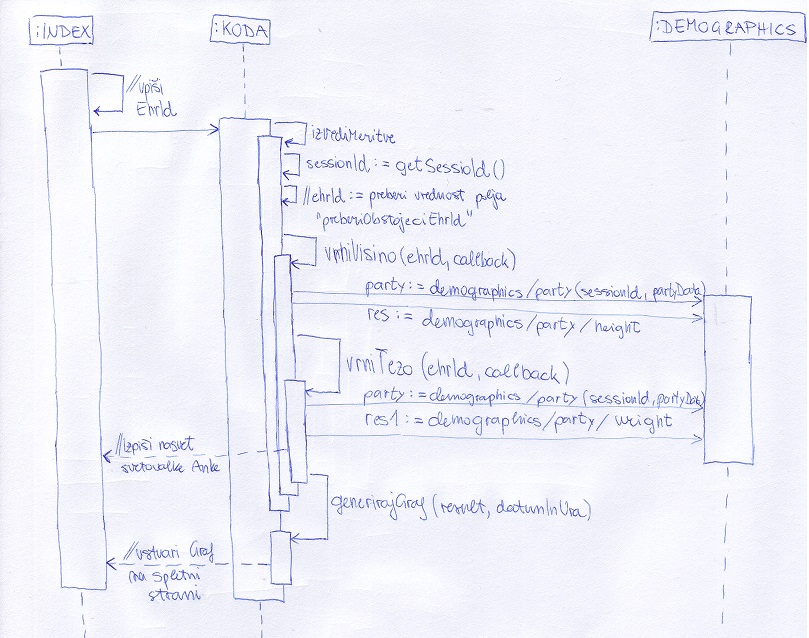 :INDEX
:KODA
:DEMOGRAPHICS
//vpiši
EhrId
izvediMeritve
sessionId := getSessioId()
//ehrId := preberi vrednost polja
"preberiObstojeciEhrId"
vrniVisino(ehrId, callback)
party := demographics/party(sessionId, partyData)
res := demographics/party/height
vrniTezo(ehrId, callback)
party := demographics/party(sessionId, partyData)
res1 := demographics/party/weight
//izpiši nasvet
svetovalke Anke
generirajGraf(result, datumInUra)
//ustvari Graf
na spletni
strani